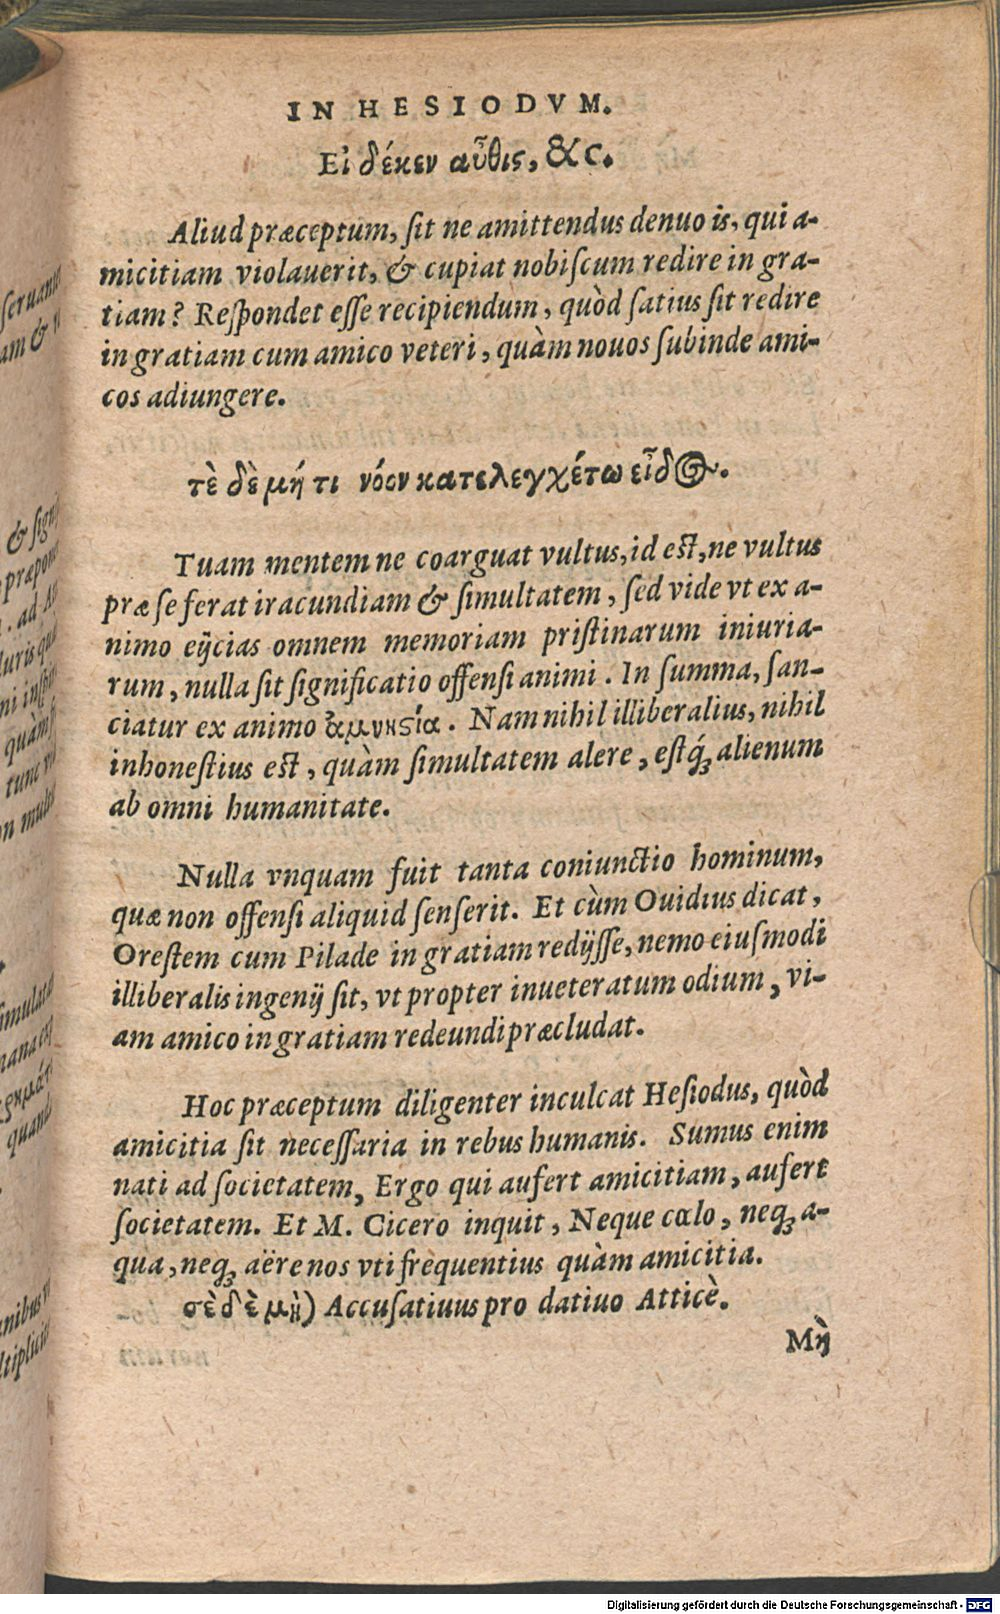 IN HESIODVM.
Εἰ δέκεν αὖθις, &c.
Aliud præceptum, ſit ne amittendus denuo is, qui a-
micitiam violauerit, & cupiat nobiſcum redire in gra-
tiam? Reſpondet eſſe recipiendum, quòd ſatius ſit redire
in gratiam cum amico veteri, quàm nouos ſubinde ami-
cos adiungere.
τὲ δὲ μή τι νόον κατελεγχέτω εἶδος.
Tuam mentem ne coarguat vultus, id eſt, ne vultus
præ ſe ferat iracundiam & ſimultatem, ſed vide vt ex a-
nimo eijcias omnem memoriam priſtinarum iniuria-
rum, nulla ſit ſignificatio offenſi animi. In ſumma, ſan-
ciatur ex animo ἀμνηςία. Nam nihil illiberalius, nihil
inhoneſtius eſt, quàm ſimultatem alere, eſtq́; alienum
ab omni humanitate.
Nulla vnquam fuit tanta coniunctio hominum,
quæ non offenſi aliquid ſenſerit. Et cùm Ouidius dicat,
Oreſtem cum Pilade in gratiam redijſſe, nemo eiuſmodi
illiberalis ingenij ſit, vt propter inueteratum odium, vi-
am amico in gratiam redeundi præcludat.
Hoc præceptum diligenter inculcat Heſiodus, quòd
amicitia ſit neceſſaria in rebus humanis. Sumus enim
nati ad ſocietatem, Ergo qui aufert amicitiam, aufert
ſocietatem. Et M. Cicero inquit, Neque cælo, neq; a-
qua, neq; aëre nos vti frequentius quàm amicitia.
σὲ δὲ μὴ) Accuſatiuus pro datiuo Atticè.
Μὴ
ſeruantur
am &
& ſign
præpone
. ad
luris qu
quàm
tunc
n mul
ſimulata
mana
quand
nibus
ltiplici
Digitalisierung gefördert durch die Deutsche Forschungsgemeinschaft - DFG